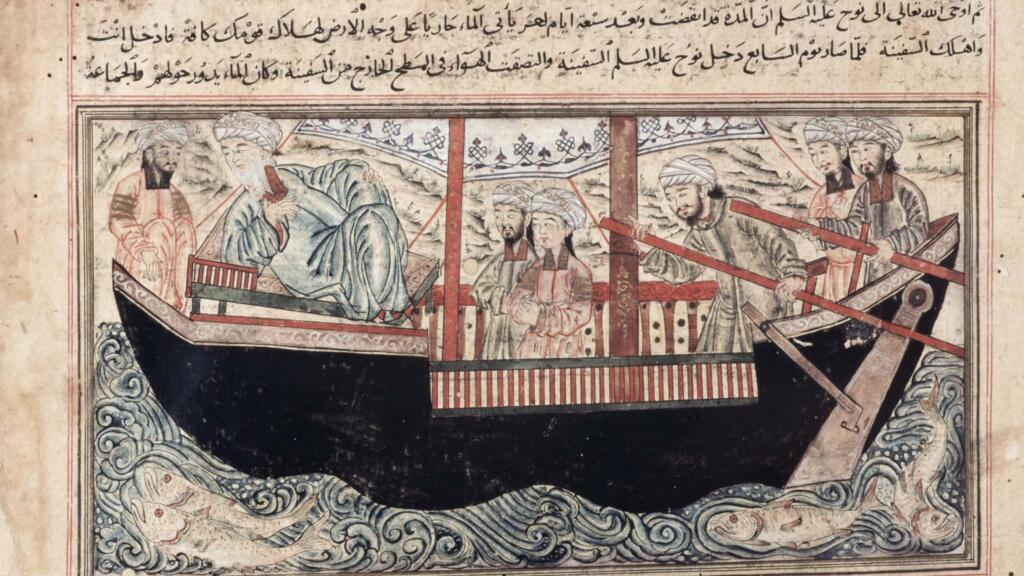 ثم اوحى الله تعالى الى نوح عليه السلم ان المدة قد انقضت وبعد سبعة ايام اخر يأتي الماء جاريا على وجه الارض لهلاك قومك كافة فادخل انت
واهلك السفينة فلما صار يوم السابع دخل نوح عليه السلم السفينة والتصقت في السطح الخارج من السفينة وكان الماء يدور حولهم والجماعة